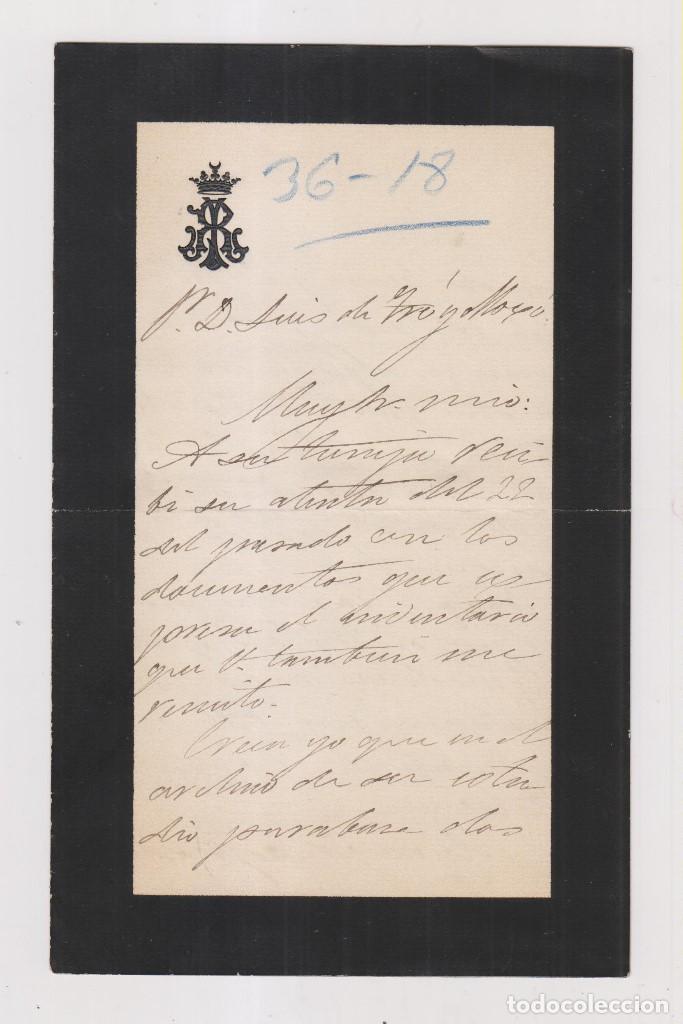 36-18
Sr. D. Luis de Fró y Moxó.
Muy Sr. mio:
A su tiempo reci
bi su atenta del 22
del pasado con los
documentos que es
presa el inventario
que V. tambien me
remito.
Creia yo que en el
archivo de su estu
dio parabase dos
todocoleccion